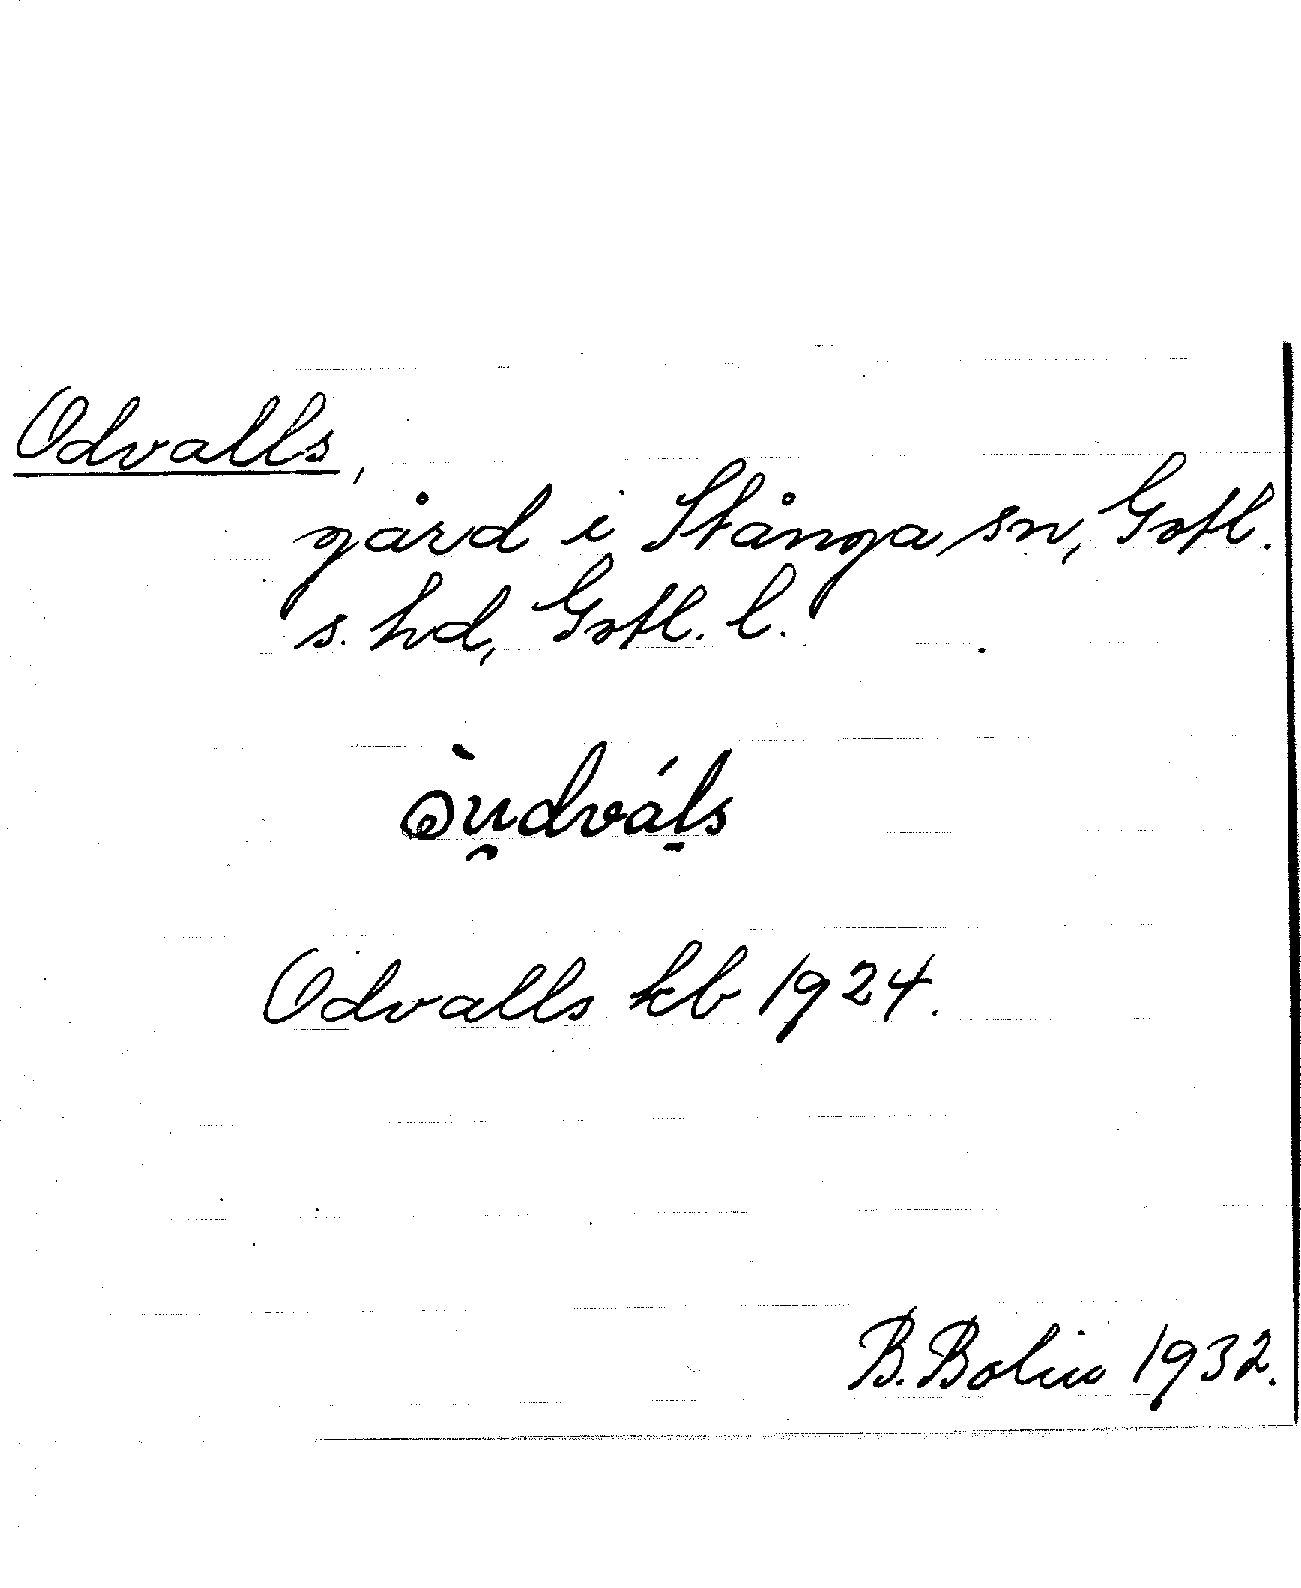 Odvalls,
gård i Stånga sn, Gotl.
s. hd, Gotl. l.
òu̯dvál̠s
Odvalls kb 1924.
B. Bolin 1932.